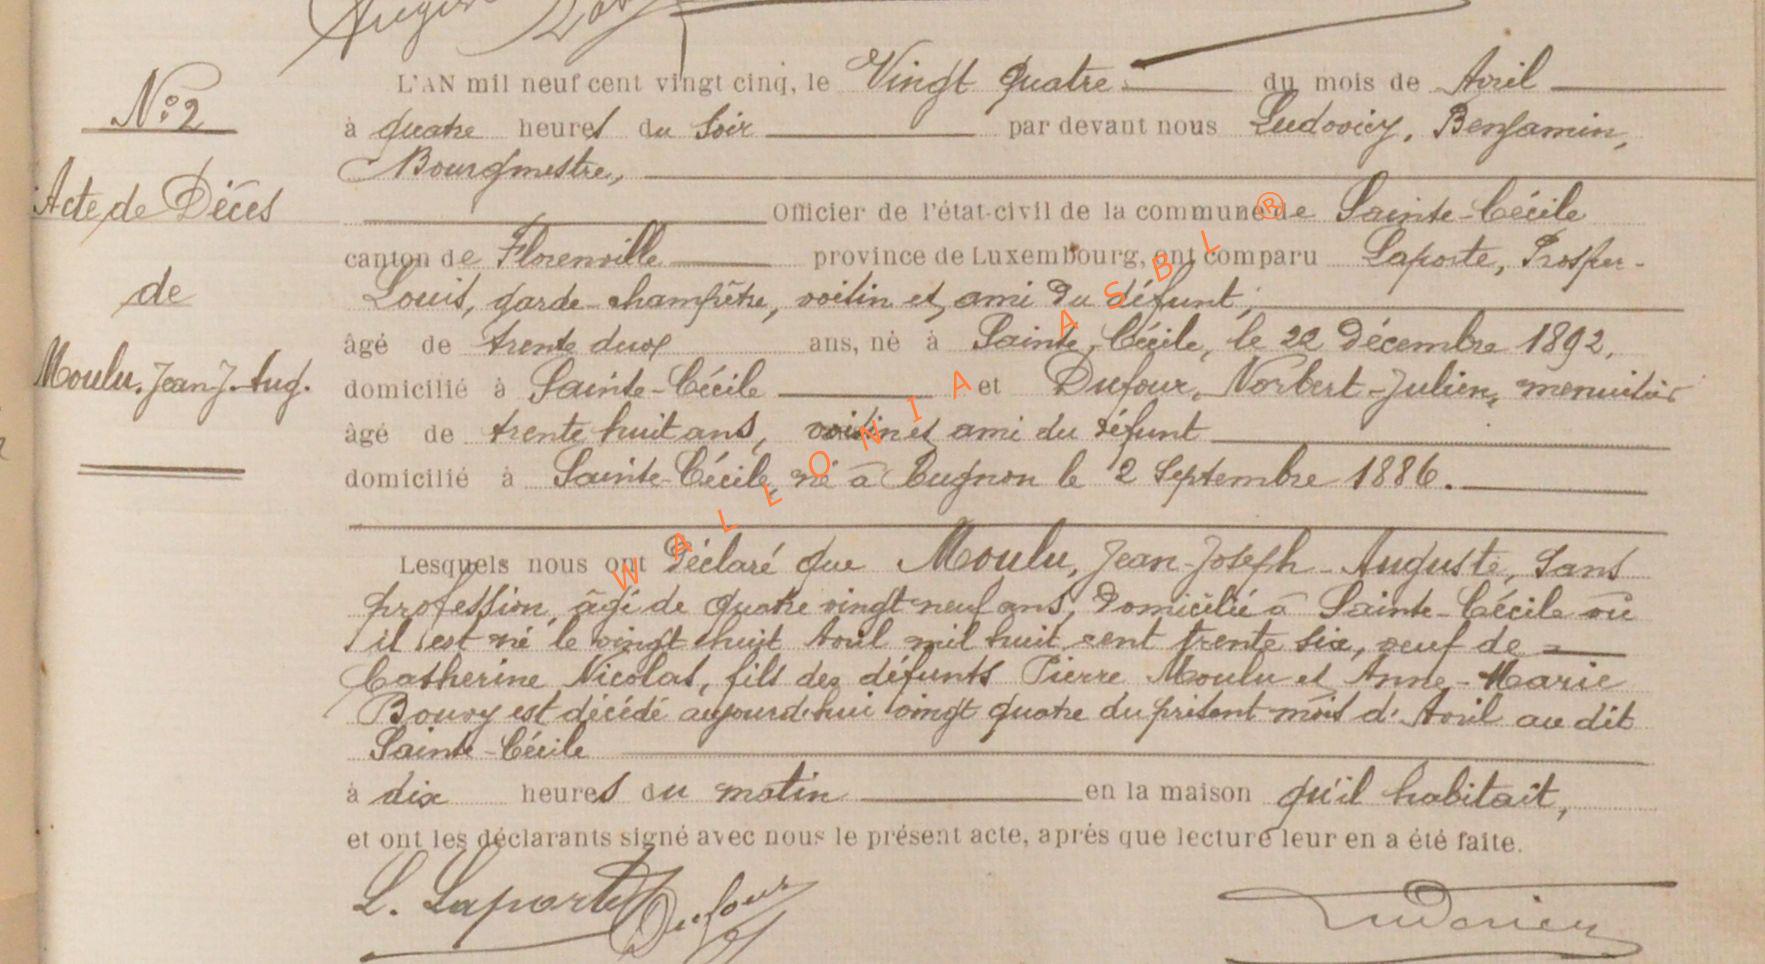 N° 2
Acte de Décès
de
Moulu. Jean J. Aug.
L'AN mil neuf cent vingt cinq, le Vingt quatre du mois de Avril
à quatre heures du soir par devant nous Ludovicy, Benjamin,
Bourgmestre,
Officier de l'état-civil de la commune de Sainte-Cécile
canton de Florenville province de Luxembourg, ont comparu Laporte, Prosper-
Louis, garde-champêtre, voisin et ami du défunt,
âgé de trente deux ans, né à Sainte Cécile, le 22 Décembre 1892,
domicilié à Sainte-Cécile et Dufour, Norbert-Julien, menuisier
âgé de trente huit ans, voisin et ami du défunt
domicilié à Sainte-Cécile, né à Cugnon le 2 Septembre 1886.
Lesquels nous ont déclaré que Moulu, Jean-Joseph-Auguste, sans
profession, âgé de quatre vingt neuf ans, domicilié à Sainte-Cécile où
il est né le vingt huit Avril mil huit cent trente six, veuf de
Catherine Nicolas, fils des défunts Pierre Moulu et Anne-Marie
Bouvy est décédé aujourd'hui vingt quatre du présent mois d'Avril au dit
Sainte-Cécile
à dix heures du matin en la maison qu'il habitait,
et ont les déclarants signé avec nous le présent acte, après que lecture leur en a été faite.
L. Laporte Dufour Ludovicy
WALLONIA ASBL ®